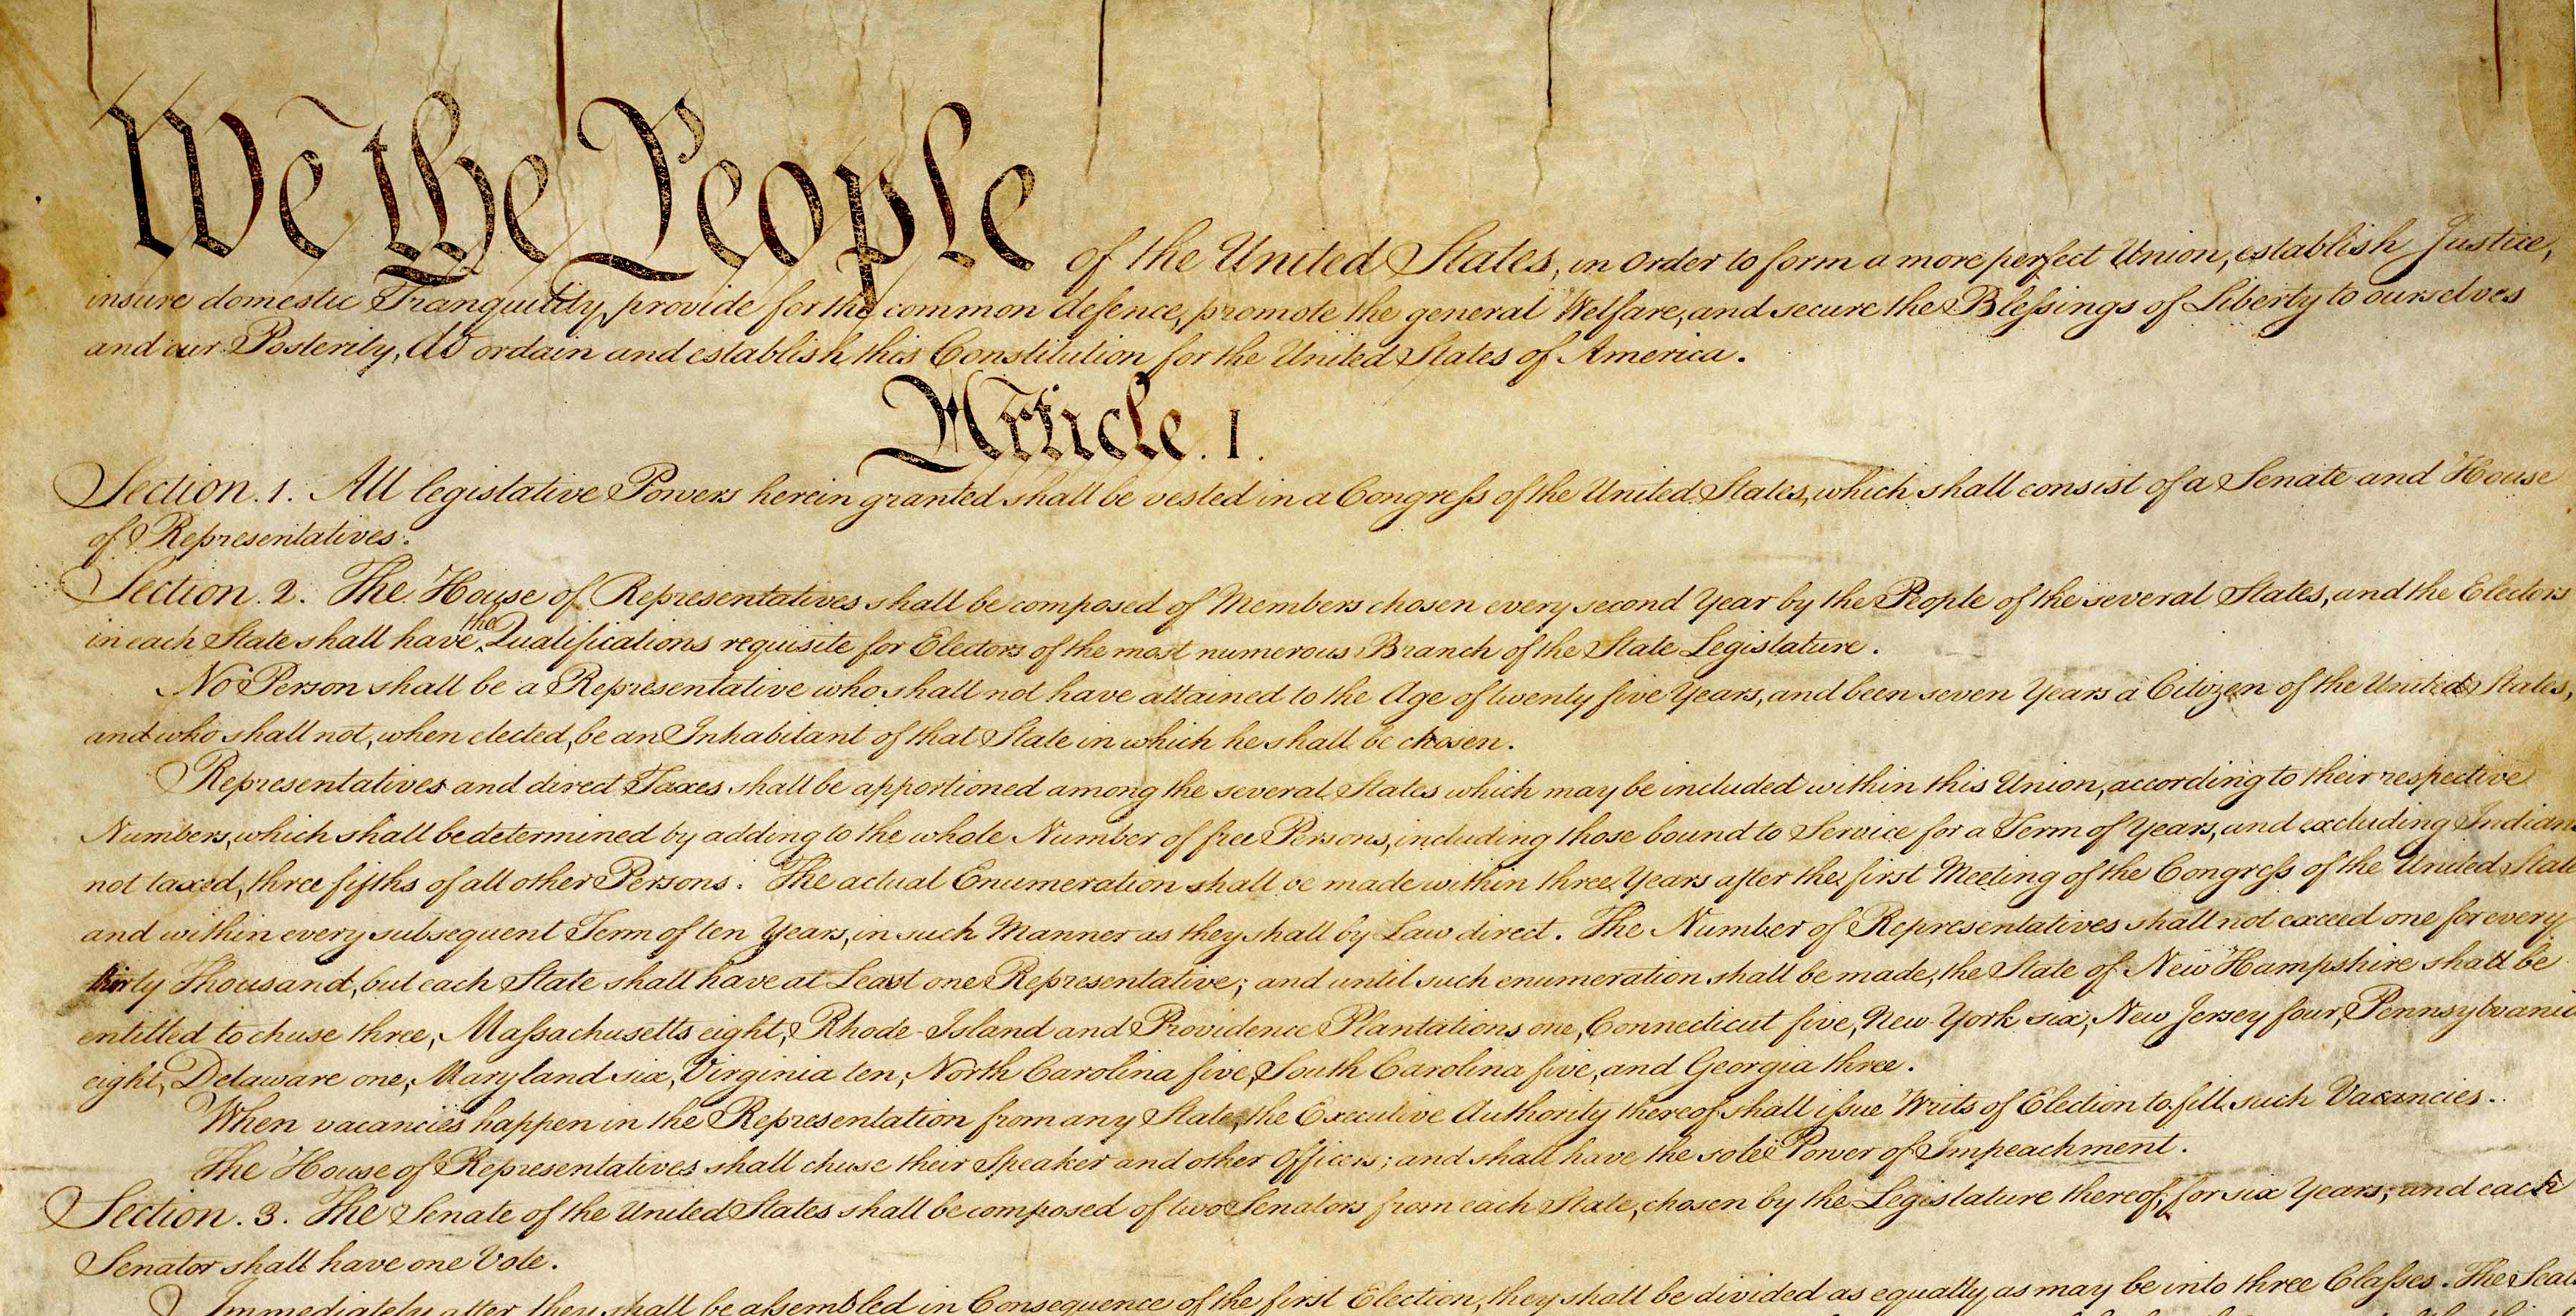 We the People of the United States, in Order to form a more perfect Union, establish Justice,
insure domestic Tranquility, provide for the common defence, promote the general Welfare, and secure the Blessings of Liberty to ourselves
and our Posterity, do ordain and establish this Constitution for the United States of America.
Article. I.
Section. 1. All legislative Powers herein granted shall be vested in a Congress of the United States, which shall consist of a Senate and House
of Representatives.
Section. 2. The House of Representatives shall be composed of Members chosen every second Year by the People of the several States, and the Electors
in each State shall have the Qualifications requisite for Electors of the most numerous Branch of the State Legislature.
No Person shall be a Representative who shall not have attained to the Age of twenty five Years, and been seven Years a Citizen of the United States,
and who shall not, when elected, be an Inhabitant of that State in which he shall be chosen.
Representatives and direct Taxes shall be apportioned among the several States which may be included within this Union, according to their respective
Numbers, which shall be determined by adding to the whole Number of free Persons, including those bound to Service for a Term of Years, and excluding Indians
not taxed, three fifths of all other Persons. The actual Enumeration shall be made within three Years after the first Meeting of the Congress of the United State
and within every subsequent Term of ten Years, in such Manner as they shall by Law direct. The Number of Representatives shall not exceed one for every
thirty Thousand, but each State shall have at Least one Representative; and until such enumeration shall be made, the State of New Hampshire shall be
entitled to chuse three, Massachusetts eight, Rhode-Island and Providence Plantations one, Connecticut five, New-York six, New Jersey four, Pennsylvania
eight, Delaware one, Maryland six, Virginia ten, North Carolina five, South Carolina five, and Georgia three.
When vacancies happen in the Representation from any State, the Executive Authority thereof shall issue Writs of Election to fill such Vacancies.
The House of Representatives shall chuse their Speaker and other Officers; and shall have the sole Power of Impeachment.
Section. 3. The Senate of the United States shall be composed of two Senators from each State, chosen by the Legislature thereof, for six Years; and each
Senator shall have one Vote.
Immediately after they shall be assembled in Consequence of the first Election, they shall be divided as equally as may be into three Classes. The Seats